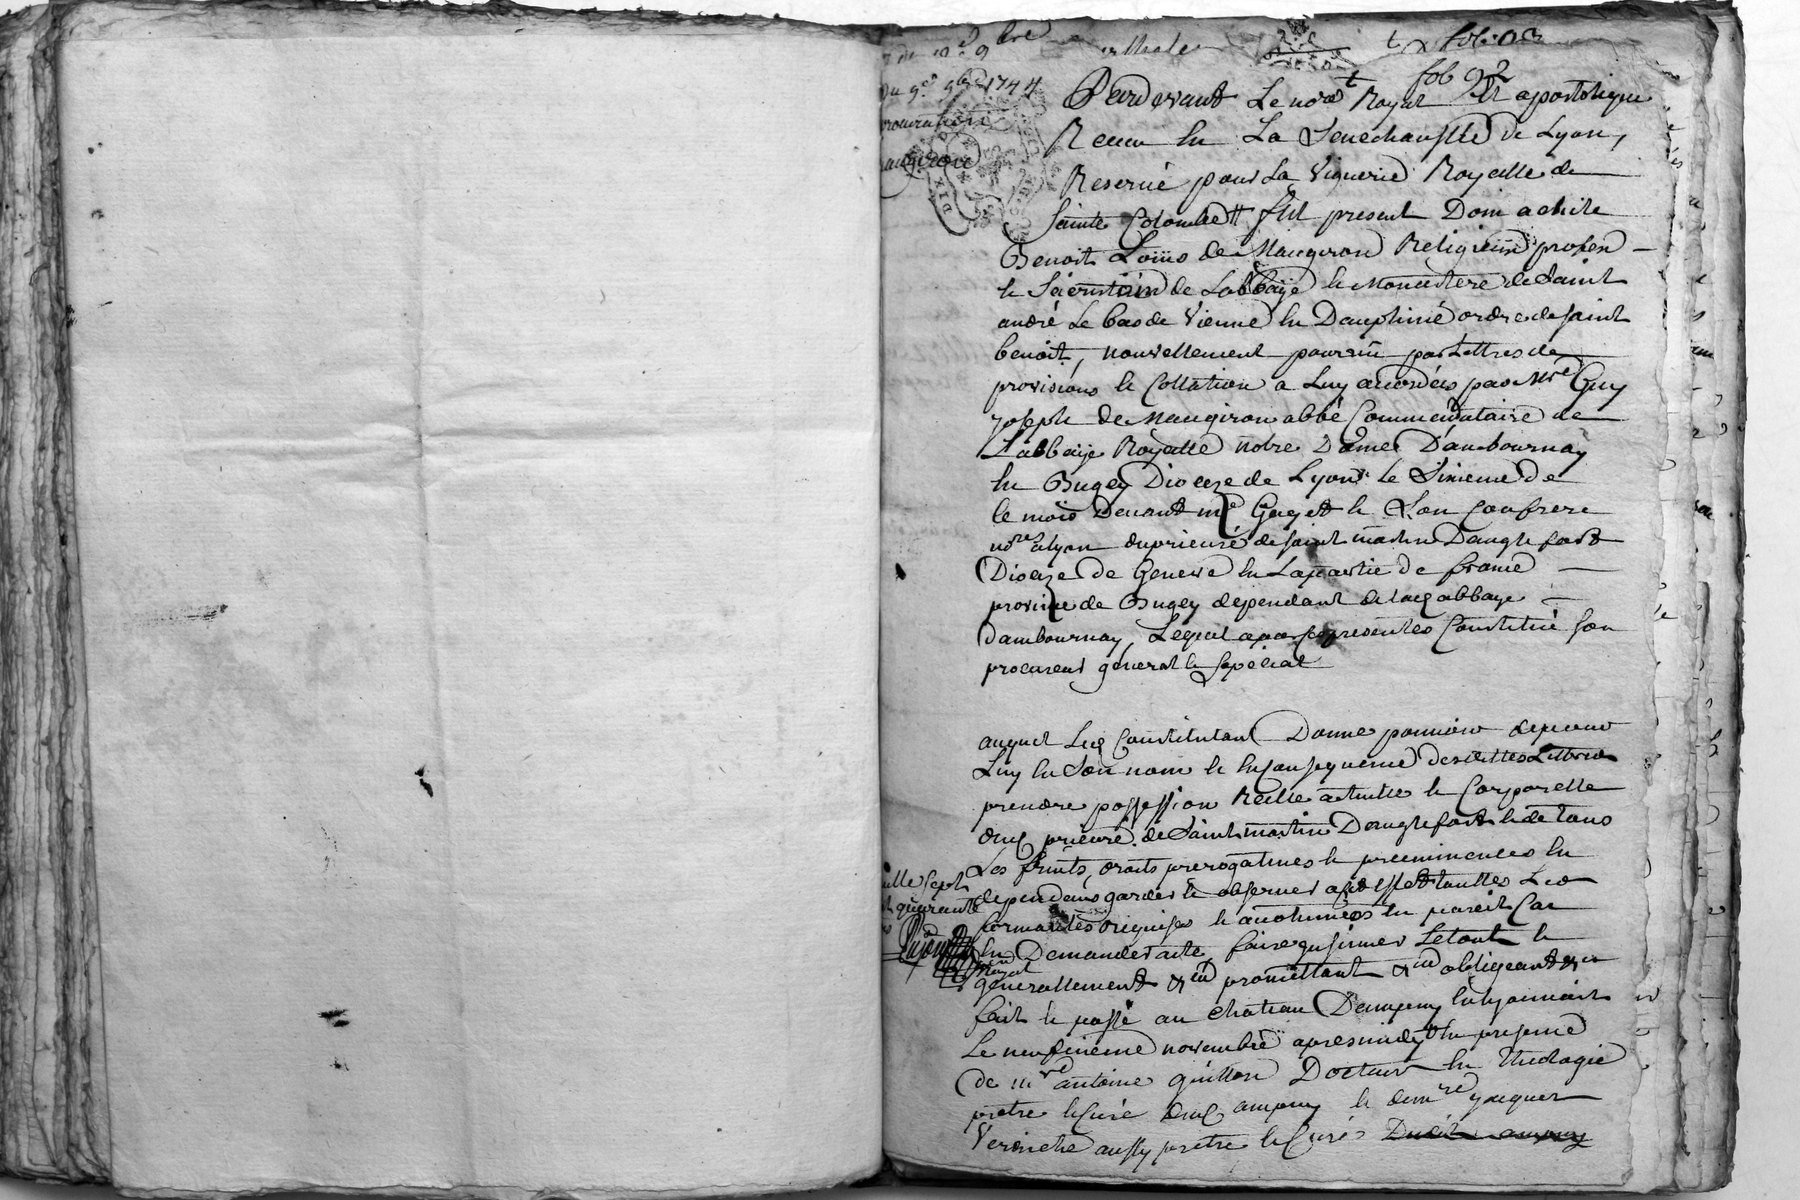 fol. 93
Du 9e 9bre 1744
procuration
maugiron
fol 92
Pardevant Le nore Royal Et apostolique
Receu En La Senechaussee de Lyon,
Reservé pour La Viguerie Royalle de
Sainte Colombe fut present Dom achile
Benoit Louis de Maugiron Religieux profes
et Sacristain de Labbaÿe et Monastere de Saint
andré Le bas de Vienne En Dauphiné ordre de saint
benoit, nouvellement pourvu par Lettres de
provisions et Collation a Luy accordées par Mre Guy
joseph de Maugiron abbé Commendataire de
Labbaÿe Royalle notre Dame Dambournay
En Bugey Dioceze de Lyon Le Sixieme de
Ce mois Devant me Gayet et Son Confrere
nores a lyon du prieuré de saint martin Danglefort
Dioceze de Geneve En La partie de france
province de Bugey dependant de lad abbaye
dambournay, Lequel a par ces presentes Constitué Son
procureur general et special
auquel Led Constituant Donne pouvoir de pour
Luy En Son nom et En Consequence desdittes Lettres
prendre possession Réelle actuelle et Corporelle
dud prieuré de Saint martin Danglefort et de tous
Les fruits, droits prerogatives et preeminences En
dependans garder et observer a cet effet touttes Les
formalités requises et accoutumées En pareil Cas
En Demander acte, faire insinuer Le tout et
generallement &a promettant &a obligeant &a
fait et passé au chateau Dampuy En lyonnois
Le neufvieme novembre apres midy En presence
de mre antoine guillon Docteur En theologie
pretre et Curé dud ampuy et de mre jacques
Verinche aussy pretre et Curé Dudit ampuy
mille sept
cent quarante